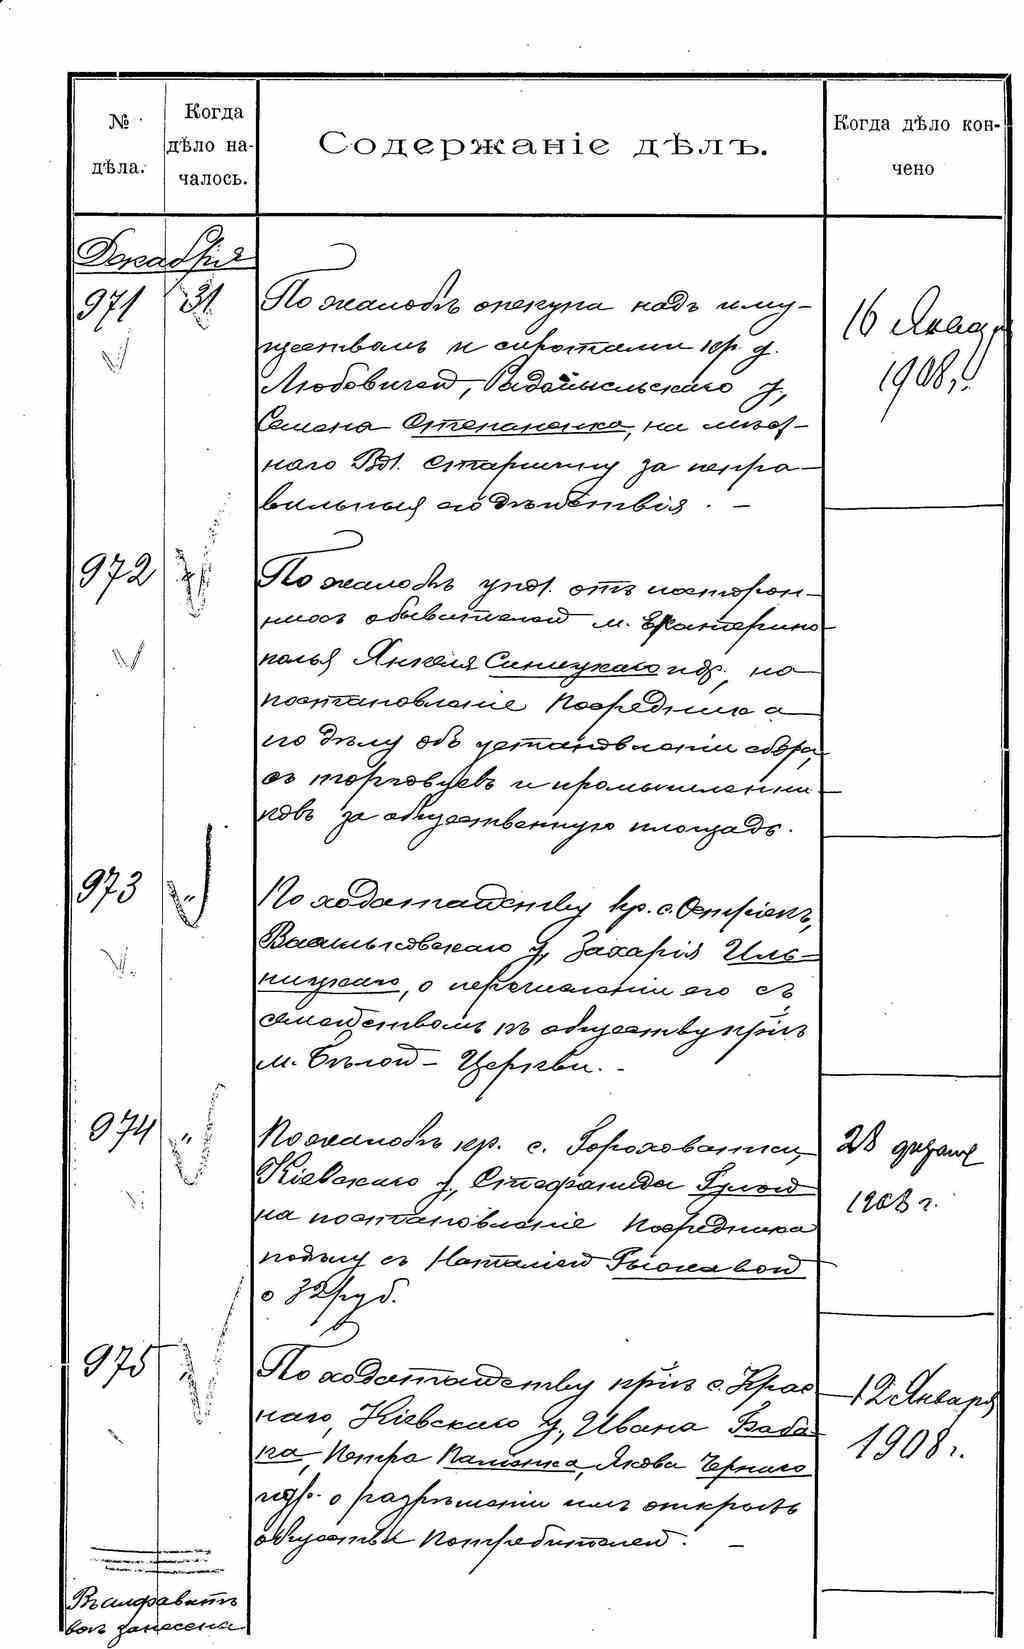 №
дѣла.
Когда
дѣло на-
чалось.
Содержаніе дѣлъ.
Когда дѣло кон-
чено
Декабря
971
31
По жалобѣ опекуна надъ иму-
ществомъ и сиротами кр. д.
Любовичей, Радомысльскаго у,
Семена Степаненка, на мѣст-
наго Вол. Старшину за непра-
вильныя его дѣйствія. -
16 Января
1908 г.
972
"
По жалобѣ упол. отъ посторон-
нихъ обывателей м. Екатерино-
полья Янкеля Синицкаго и др, на
постановленіе Посредника
по дѣлу объ установленіи сбора,
съ торговцевъ и промышленни-
ковъ за общественную площадь.
973
"
По ходатайству кр. с. Острiекъ,
Васильковскаго у, Захарія Иль-
ницкаго, о перечисленіи его съ
семействомъ къ обществу кр-нъ
м. Бѣлой-Церкви. -
974
"
По жалобѣ кр. с. Гороховатки,
Кіевскаго у., Стефаниды Гулой
на постановленіе Посредника
по дѣлу съ Наталіей
о 32 руб.
28 февраля
1908 г.
975
"
По ходатайству кр-нъ с. Крас-
наго, Кіевскаго у, Ивана Баба-
ка, Петра Паліенка, Якова Чернаго
и др. о разрѣшеніи имъ открыть
общество Потребителей. -
12 Января
1908 г.
Въ алфавитъ
всѣ занесены.